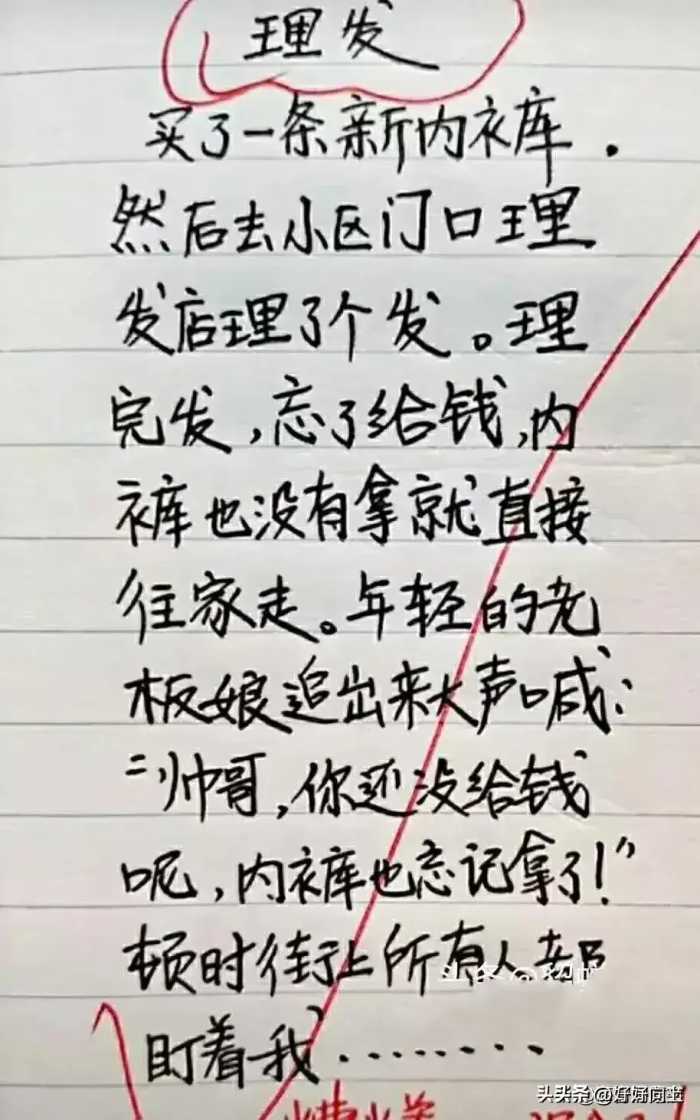 理发
买了一条新内裤.
然后去小区门口理
发店理了个发。理
完发,忘了给钱,内
裤也没有拿就直接
往家走。年轻的老
板娘追出来大声喊:
“帅哥,你还没给钱
呢,内裤也忘记拿了!”
顿时街上所有人都
盯着我………
头头条 @好好向上